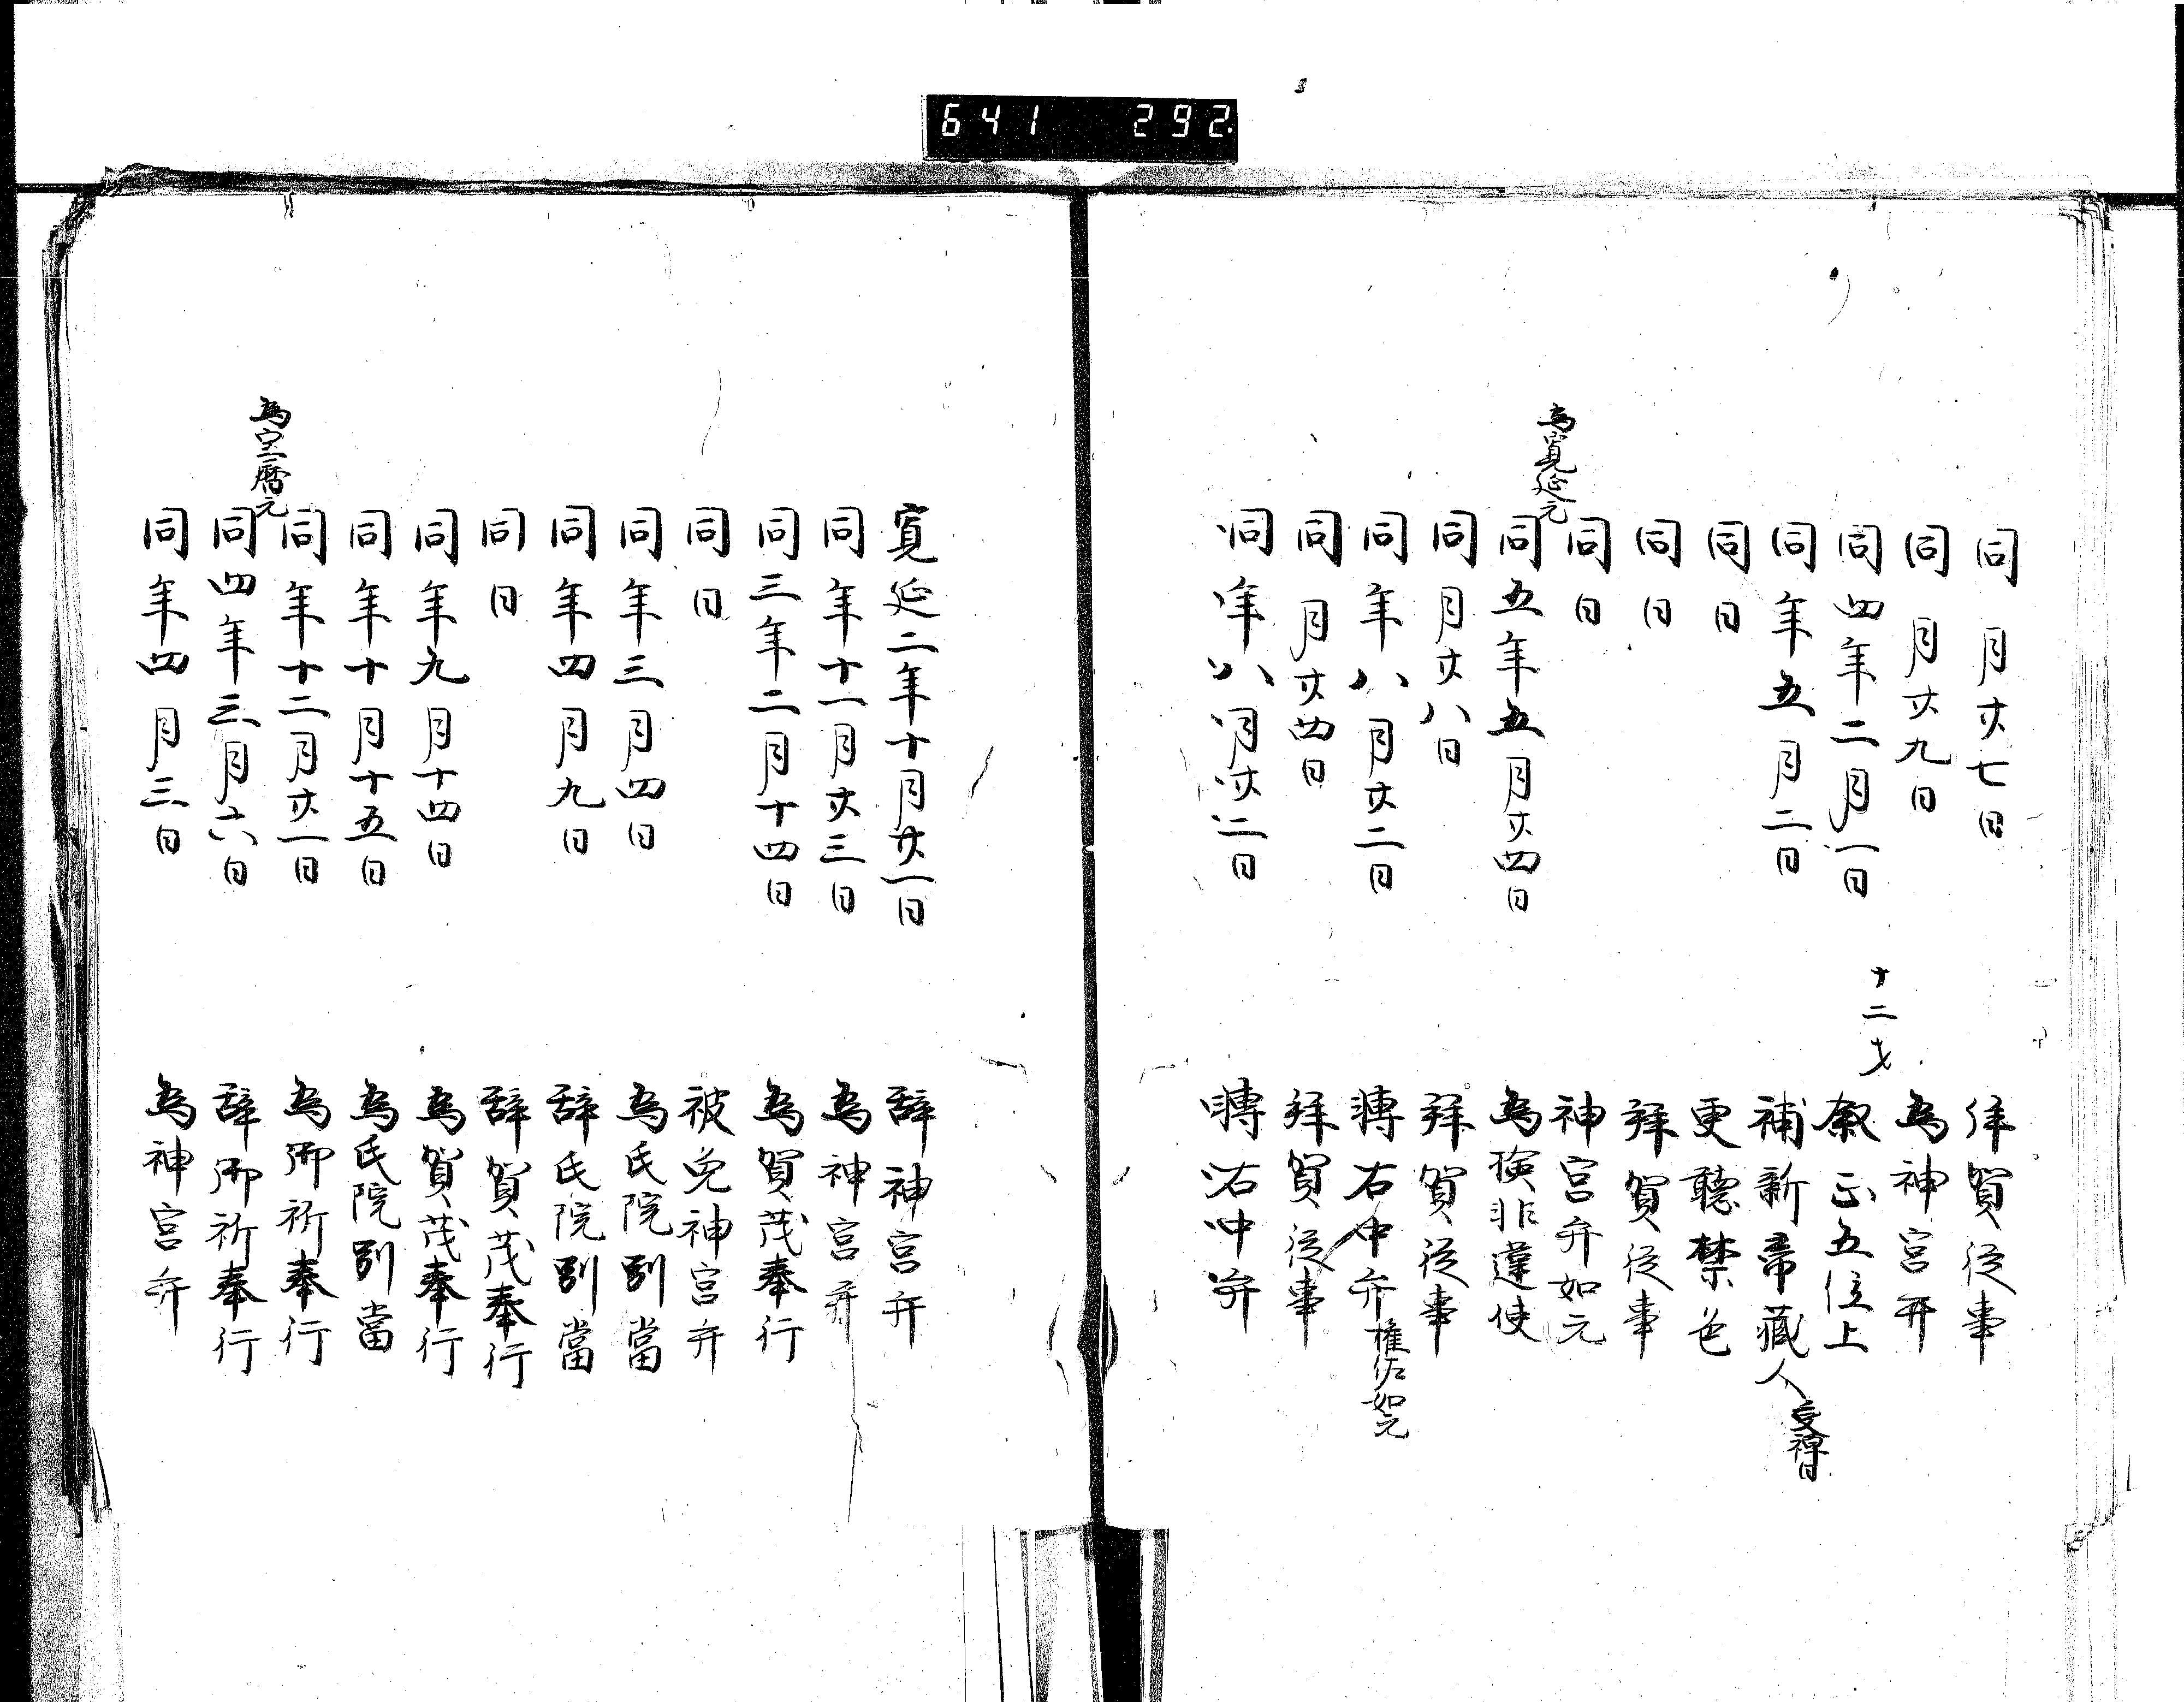 641 292
同 月廿七日 拜賀從事
同 月廿九日 為神宮弁
同四年二月一日 十二才 叙正五位上
同年五月二日 補新帝藏人 受禅日
同日 更聴禁色
同日 拜賀從事
同日 神宮弁如元
為寛延元
同五年五月廿四日 為檢非違使
同月廿八日 拜賀從事
同年八月廿二日 轉右中弁 権佐如元
同月廿四日 拜賀從事
同年八月廿二日 轉右中弁
寛延二年十月廿一日 辞神宮弁
同年十一月廿三日 為神宮弁
同三年二月十四日 為賀茂奉行
同日 被免神宮弁
同年三月四日 為氏院別當
同年四月九日 辞氏院別當
同日 辞賀茂奉行
同年九月十四日 為賀茂奉行
同年十月十五日 為氏院別當
同年十二月廿一日 為御祈奉行
為宝暦元
同四年三月六日 辞御祈奉行
同年四月三日 為神宮弁